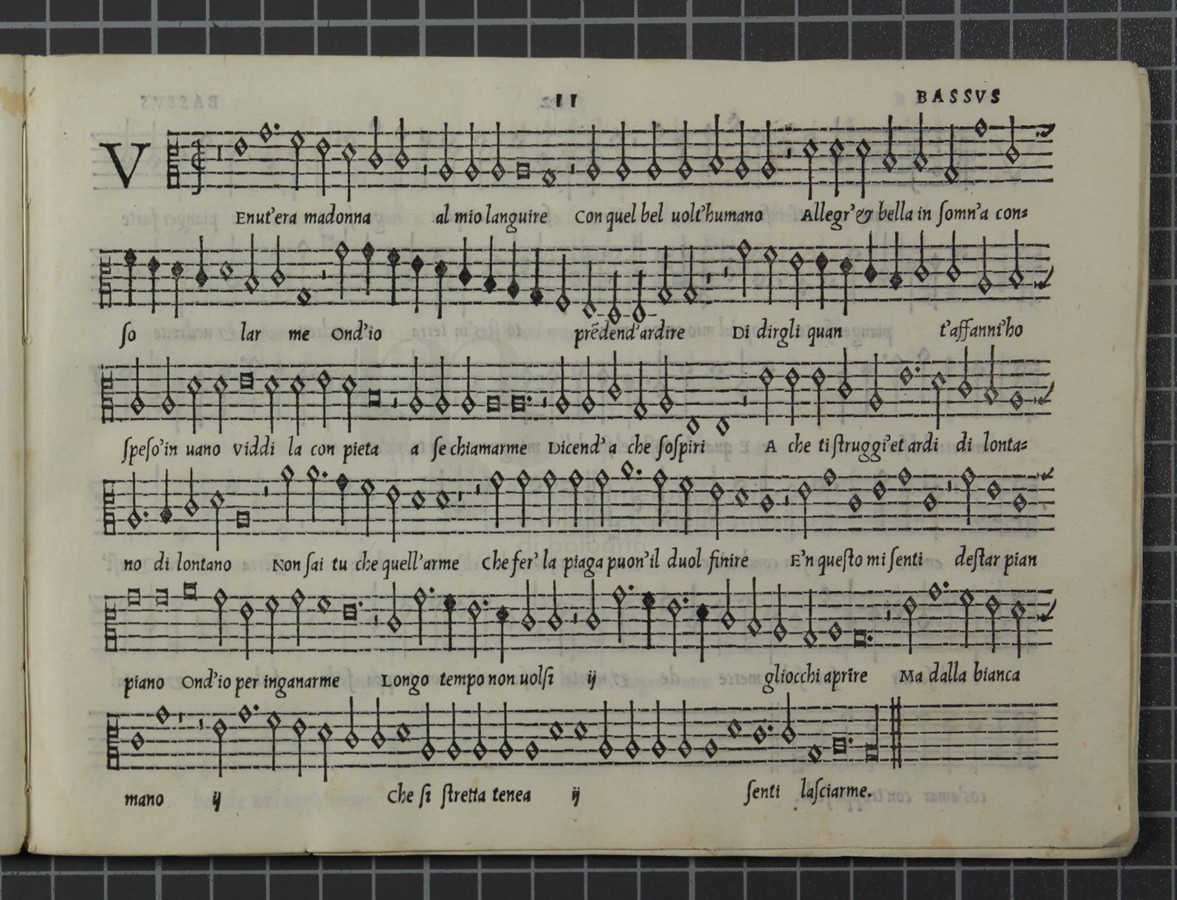 11 BASSVS
VEnut'era madonna al mio languire Con quel bel uolt'humano Allegr'& bella in ſomn'a con=
ſo lar me Ond'io prēdend'ardire Di dirgli quan t'affanni'ho
ſpeſo'in uano viddi la con pieta a ſe chiamarme Dicend'a che ſoſpiri A che ti ſtruggi'et ardi di lonta=
no di lontano Non ſai tu che quell'arme Che fer' la piaga puon'il duol finire E'n queſto mi ſenti deſtar pian
piano Ond'io per inganarme Longo tempo non uolſi ij gliocchi aprire Ma dalla bianca
mano ij Che ſi ſtretta tenea ij ſenti laſciarme.